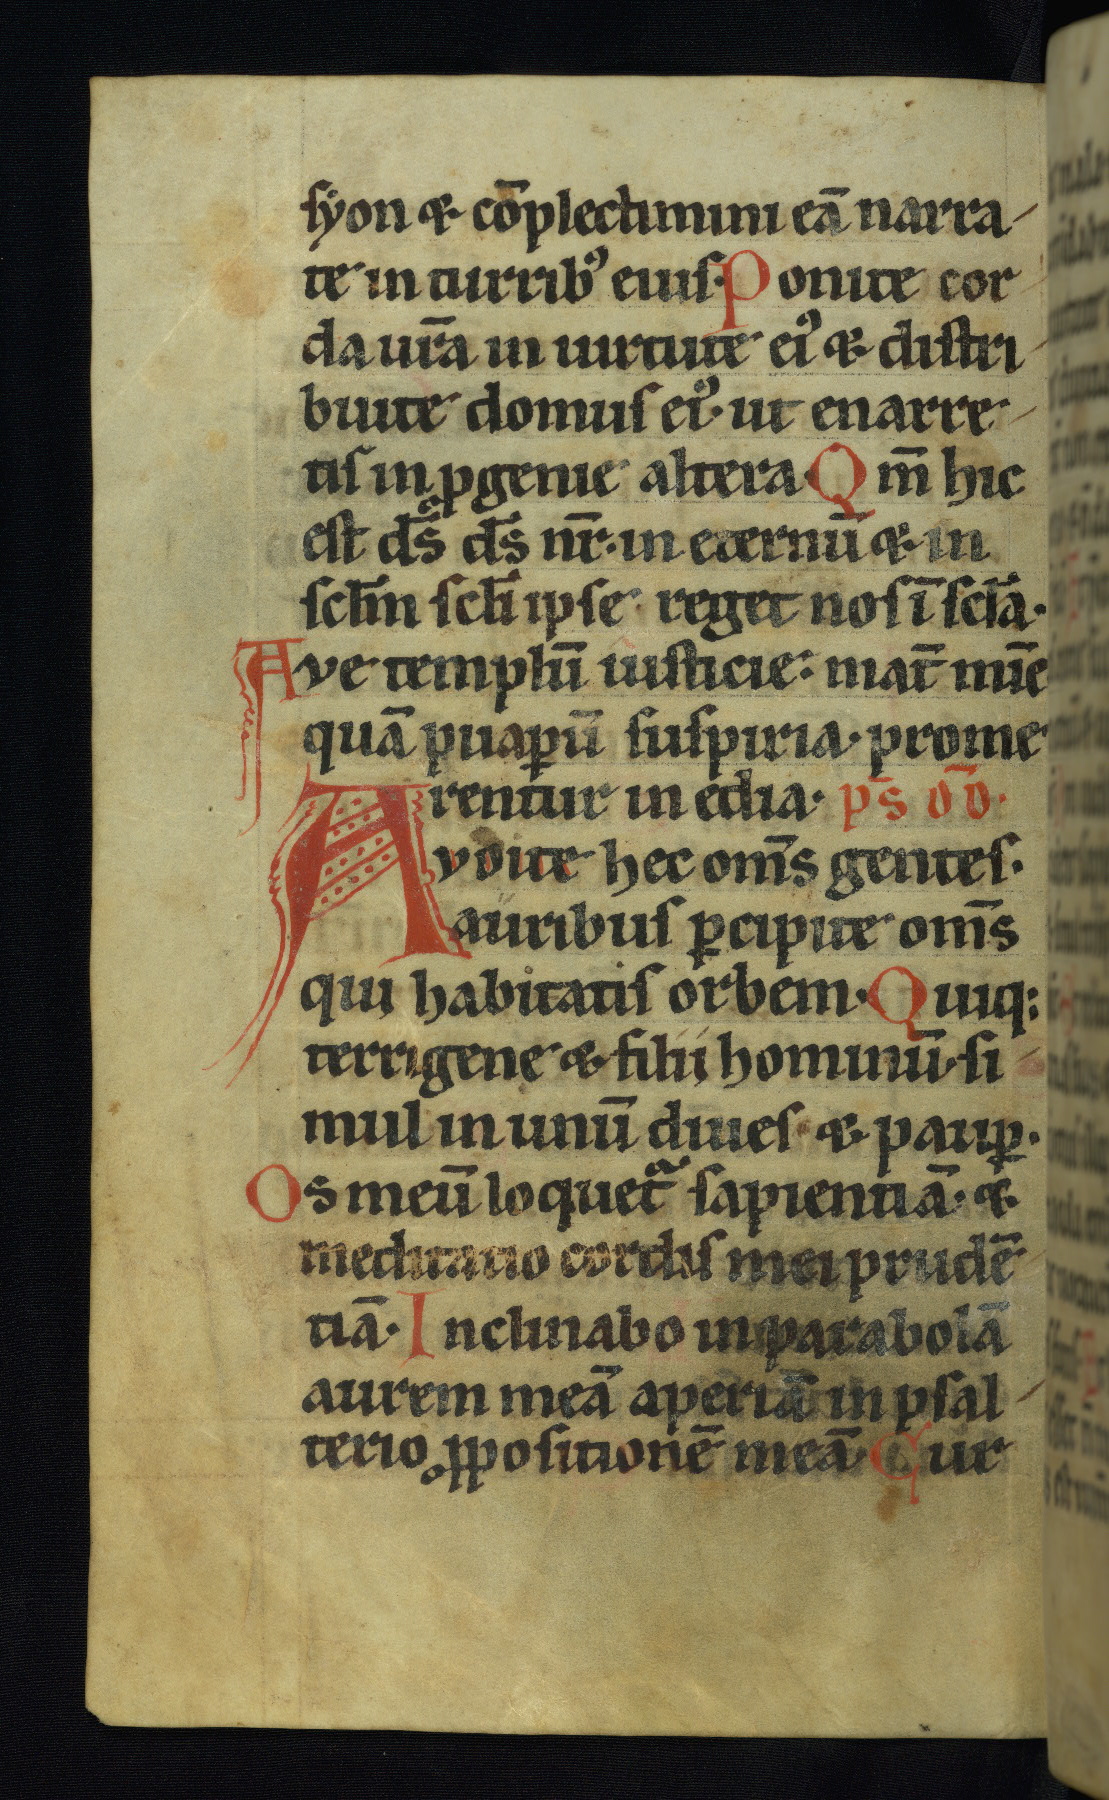 syon & co̅plectimini ea̅ narra-
te in turrib⁹ eius. Ponite cor
da ur̅a in uirtute ei⁹ & distri-
buite domus ei⁹. ut enarre-
tis in p̱genie altera. Qm̅ hic
est ds̅ ds̅ nr̅. in eternu̅ & in
scl̅m scl̅i ipse reget nos i̅ scl̅a.
Ave templu̅ iusticie: mat̅ mi̅e
qua̅ puaꝑu̅ suspiria. prome
rentur in edia. ps̅ dd̅.
Avdite hec om̅s gentes.
auribus ꝑcipite om̅s
qui habitatis orbem. Quiq:
terrigene & filii hominu̅. si-
mul in unu̅ diues & pauꝑ.
Os meu̅ loquet᷑ sapientia̅. &
meditatio cordis mei prude̅
tia̅. Inclinabo in parabola̅
aurem mea̅ aperia̅ in psal-
terio ꝓpositione̅ mea̅. Cur